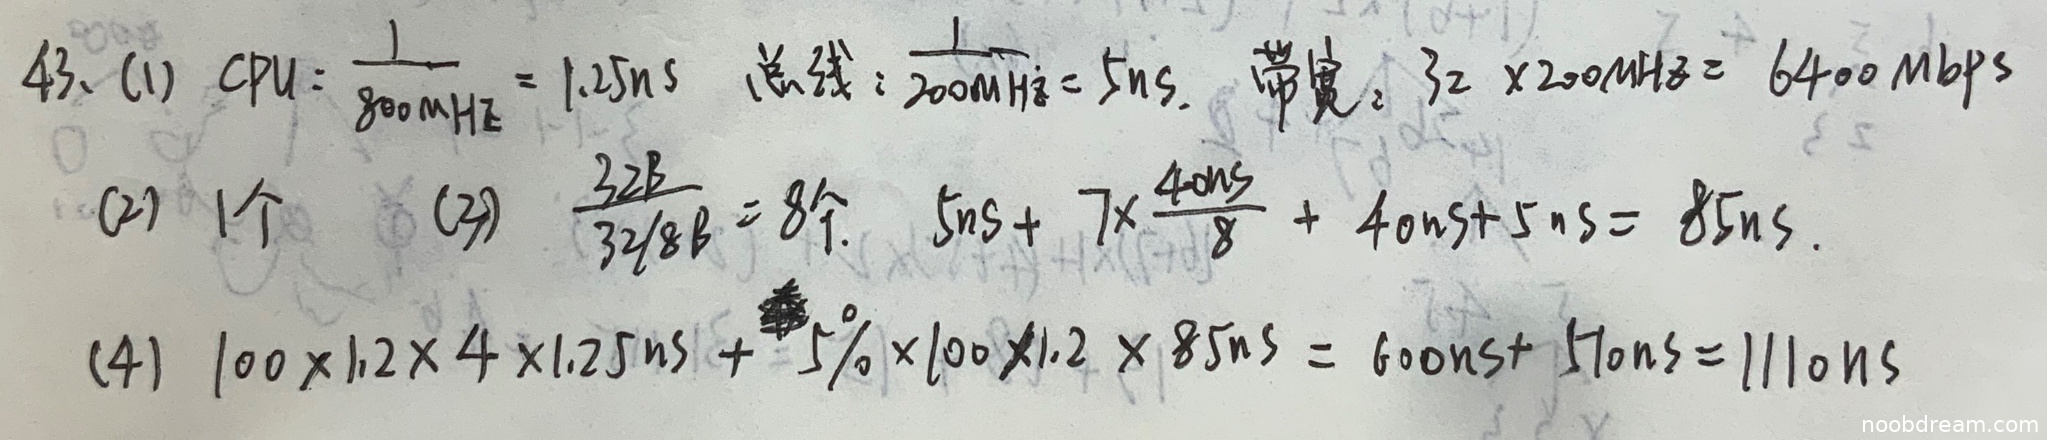 43、(1) CPU: 1/800MHz = 1.25ns 总线: 1/200MHz = 5ns. 带宽: 32 ×200MHz = 6400 Mbps
(2) 1个 (3) 32B/32/8B = 8个. 5ns + 7×40ns/8 + 40ns+5ns = 85ns.
(4) 100×1.2×4×1.25ns + 5%×100×1.2×85ns = 600ns+510ns=1110ns
noobdream.com